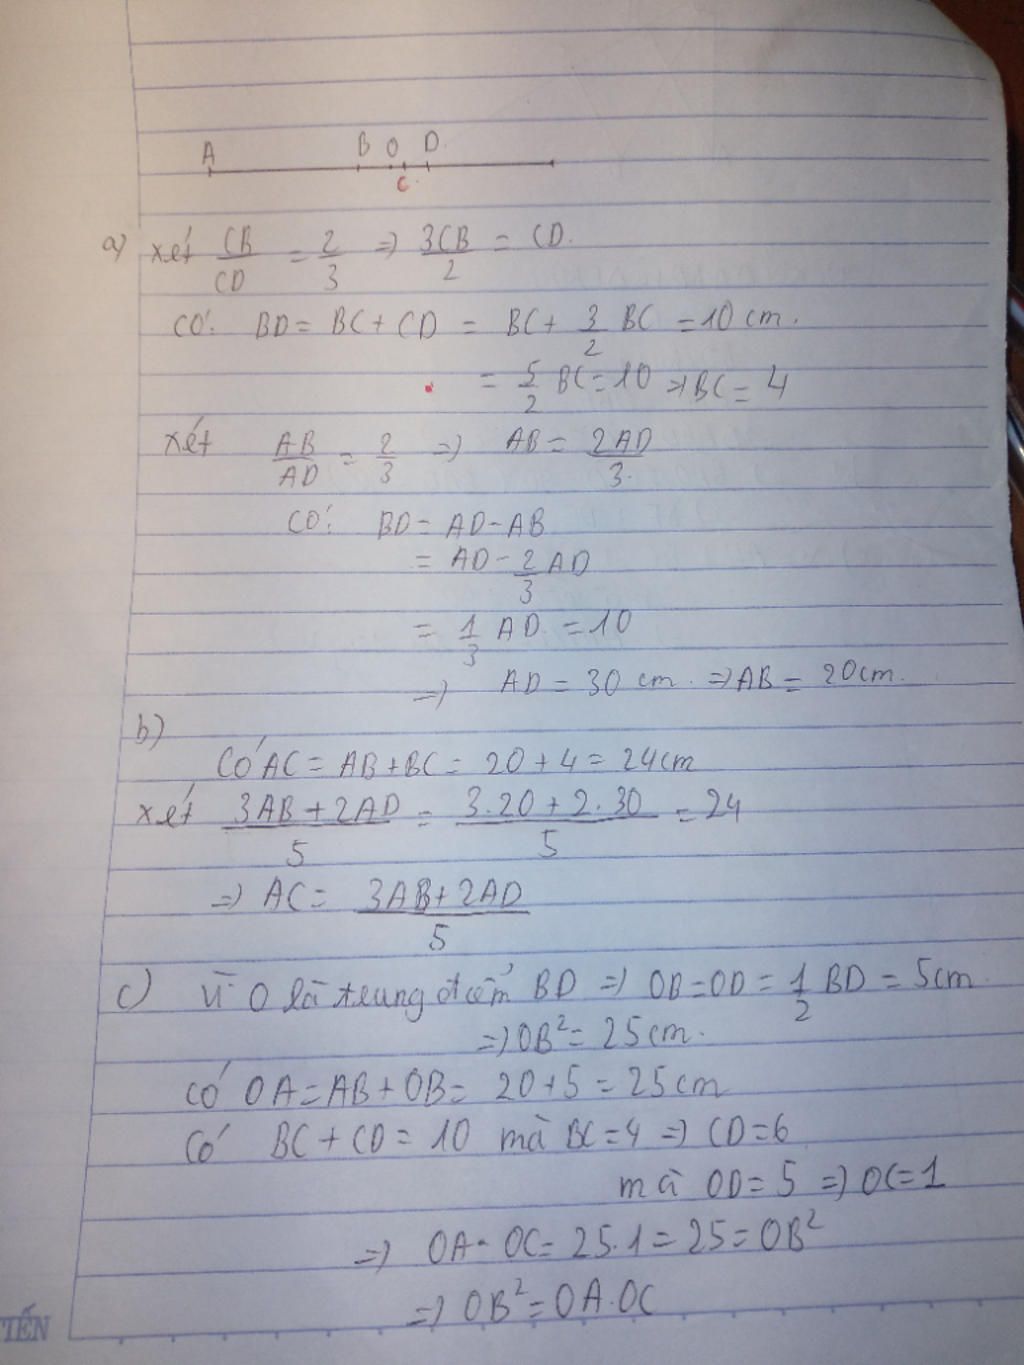 A B O D
C
a) xét CB/CD = 2/3 => 3CB/2 = CD.
có: BD = BC + CD = BC + 3/2 BC = 10 cm.
= 5/2 BC = 10 => BC = 4
xét AB/AD = 2/3 => AB = 2AD/3.
có: BD = AD - AB
= AD - 2/3 AD
= 1/3 AD = 10
=> AD = 30 cm. => AB = 20cm.
b)
có AC = AB + BC = 20 + 4 = 24cm
xét 3AB + 2AD/5 = 3.20 + 2.30/5 = 24
=> AC = 3AB + 2AD/5
c) Vì O là trung điểm BD => OB = OD = 1/2 BD = 5cm.
=> OB² = 25cm.
có OA = AB + OB = 20 + 5 = 25cm
có BC + CD = 10 mà BC = 4 => CD = 6
mà OD = 5 => OC = 1
=> OA . OC = 25.1 = 25 = OB²
=> OB² = OA.OC
TẾN